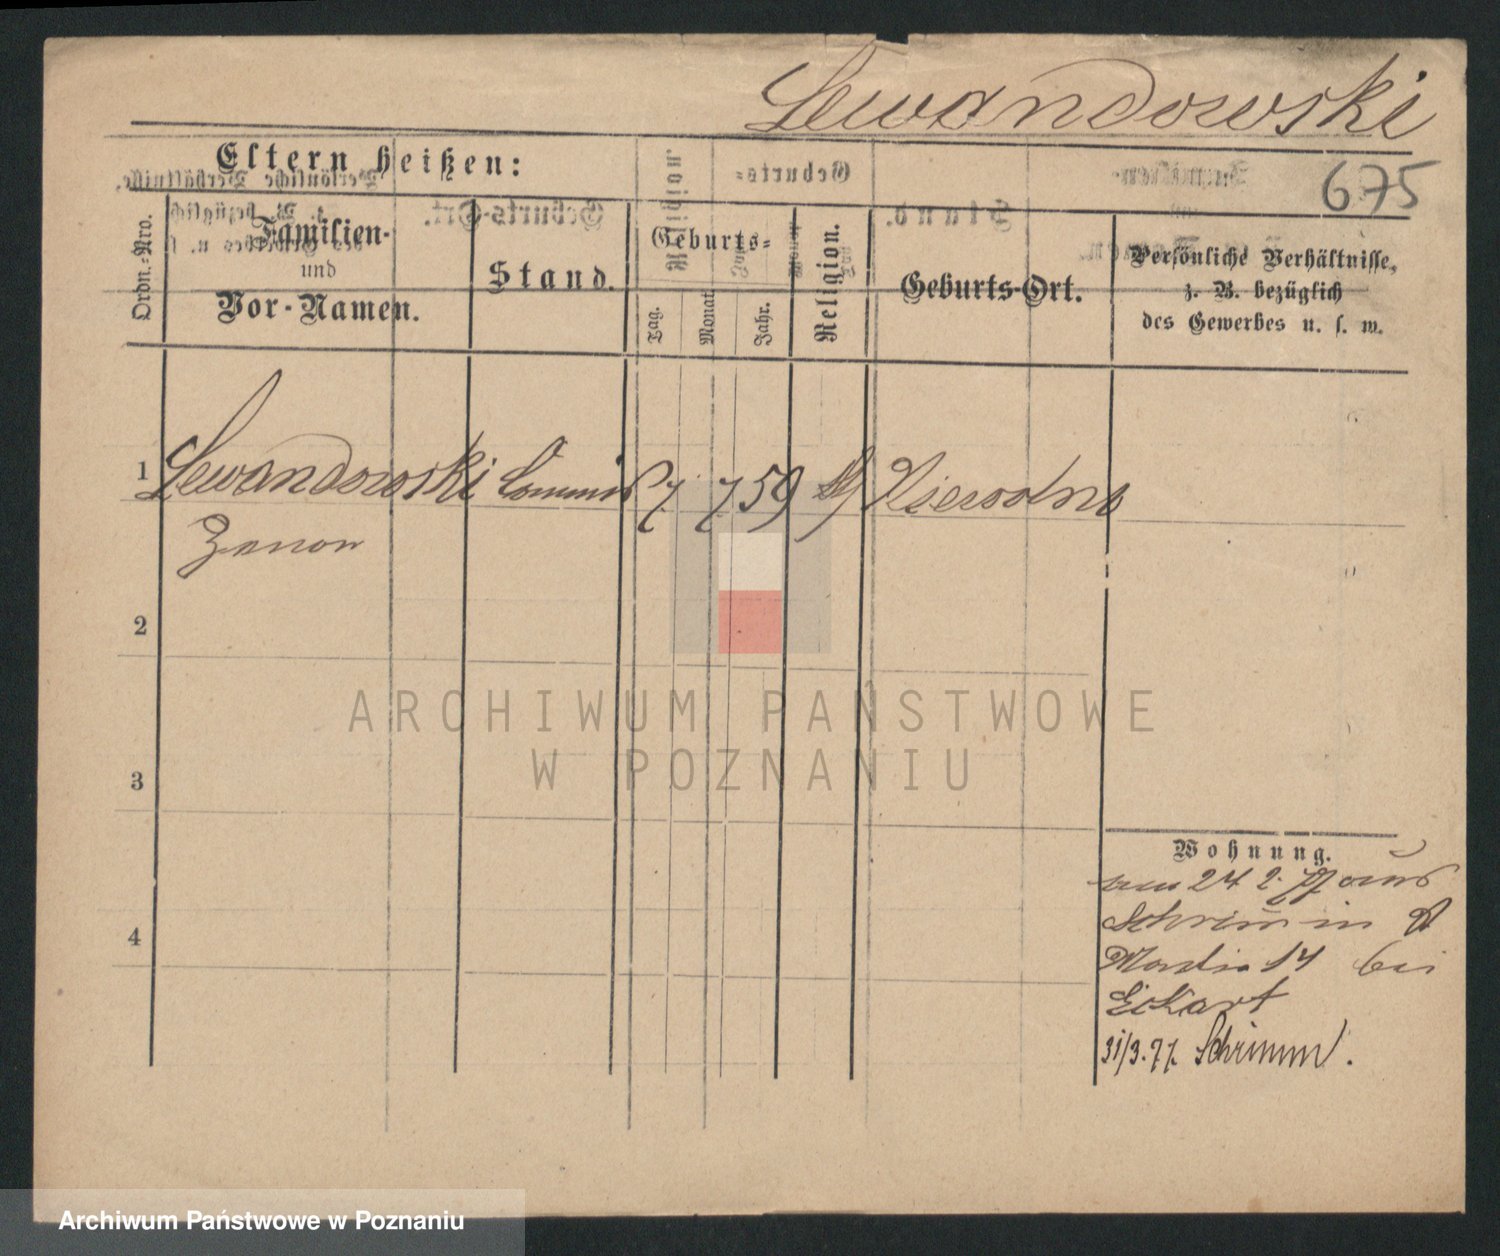 Lewandowski
675
Eltern heißen:
Ordn.-Nro.
Familien-
und
Vor-Namen.
Stand.
Geburts-
Tag.
Monat
Jahr.
Religion.
Geburts-Ort.
Persönliche Verhältnisse,
z. B. bezüglich
des Gewerbes u. s. w.
1 Lewandowski Commis 7 7 59
Zenon
2
ARCHIWUM PAŃSTWOWE
W POZNANIU
3
Wohnung.
24 2. 77 aus
Schrim in
4
14 bei
Eckart
31/3. 77. Schrimm.
Archiwum Państwowe w Poznaniu